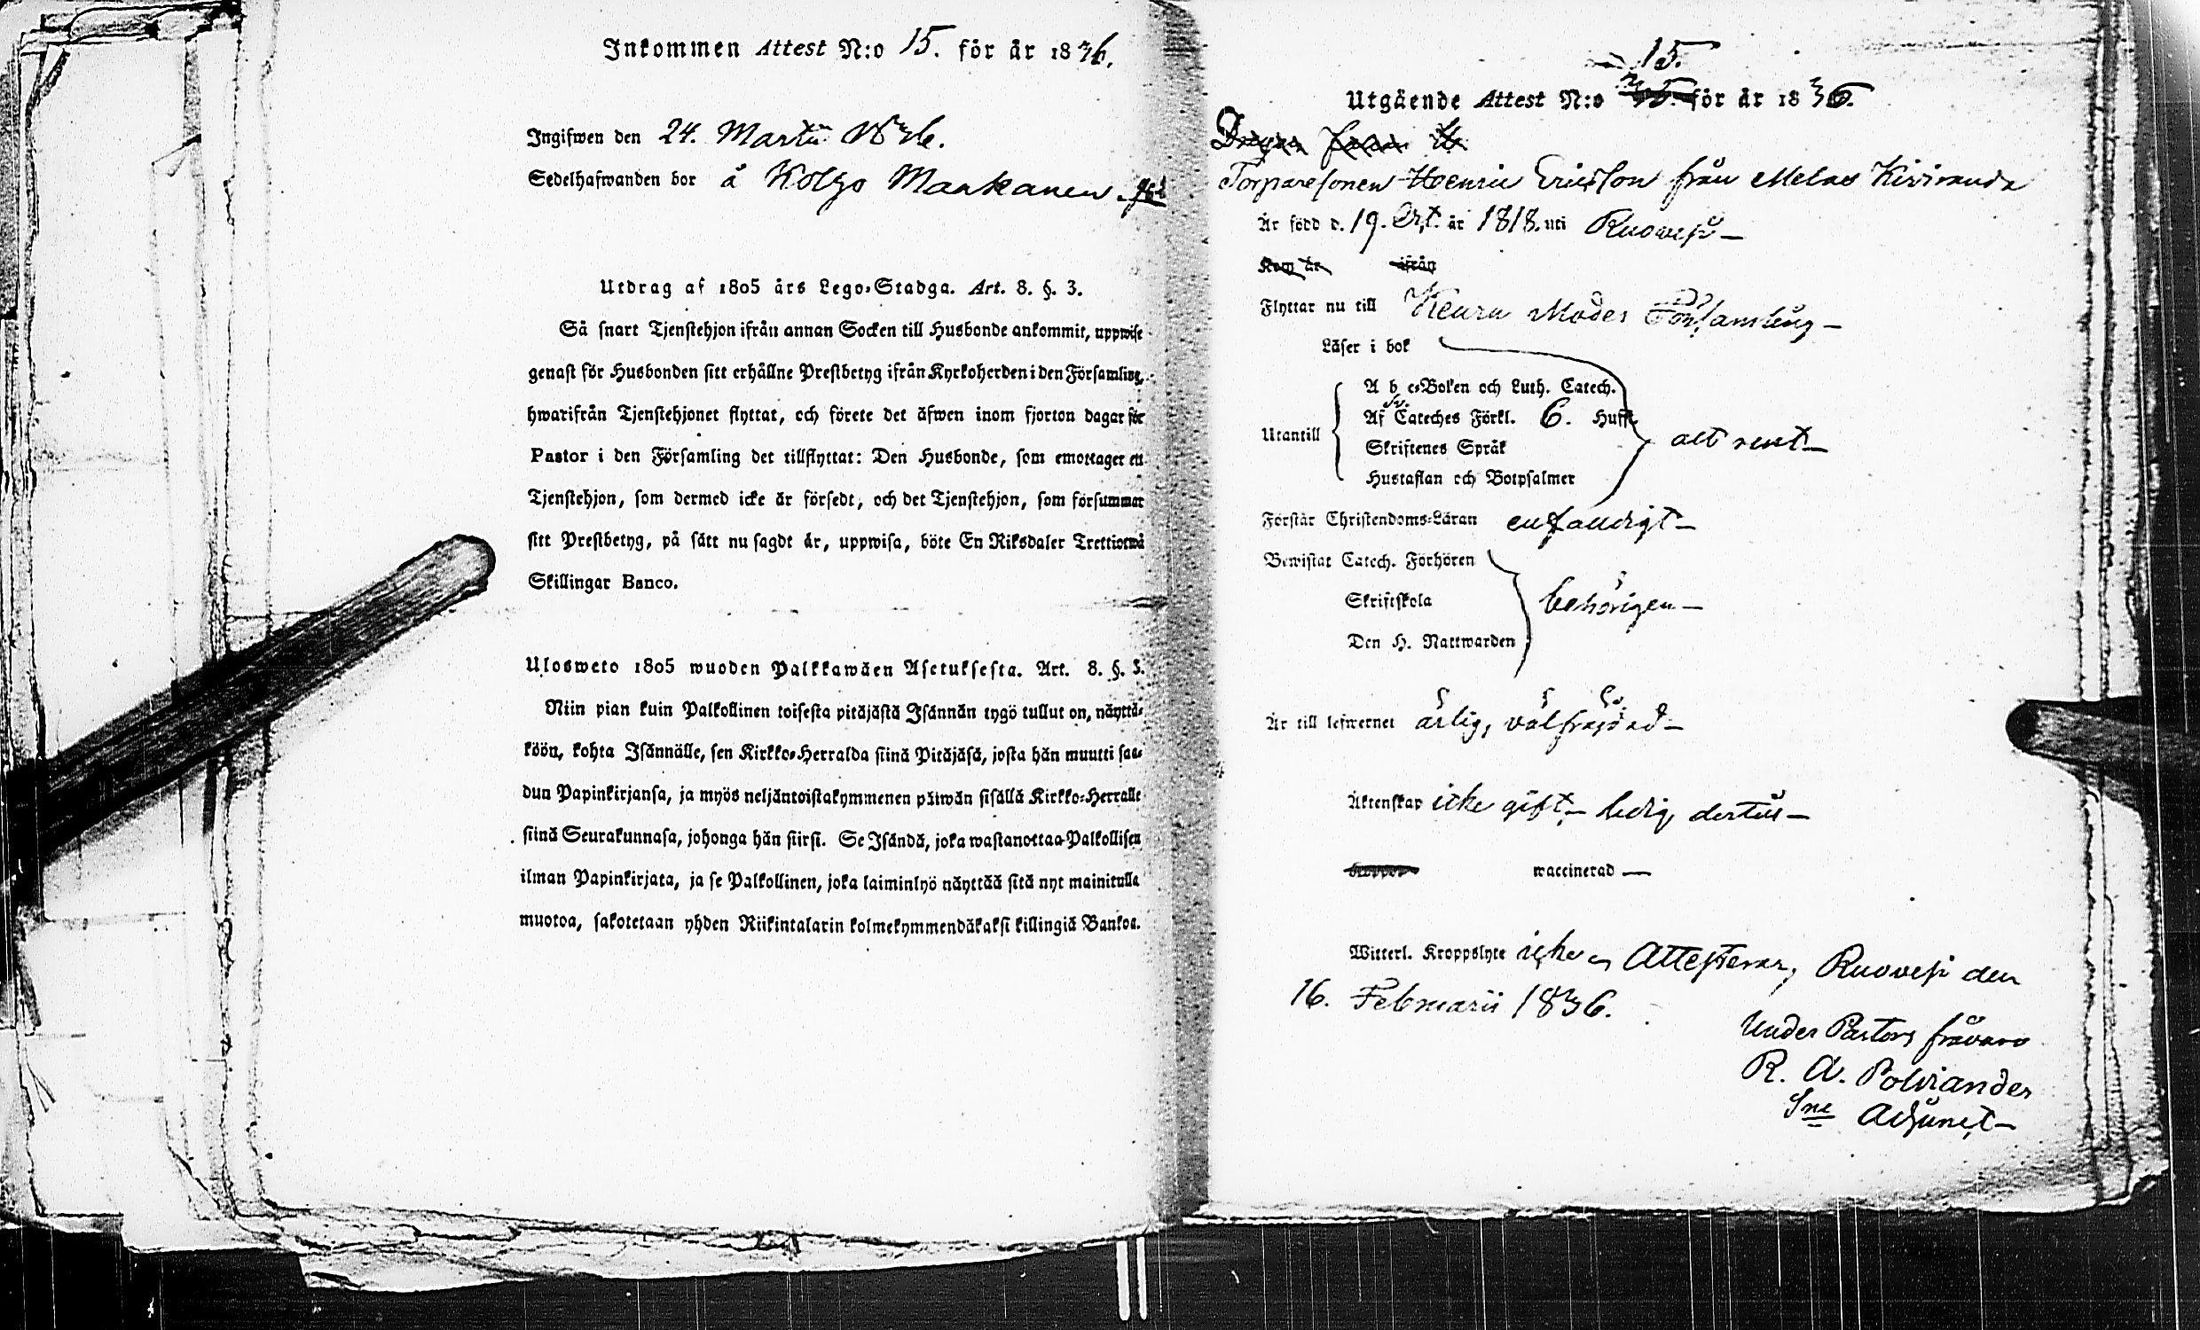 Inkommen Attest N:o 15. för år 1836.
Ingifwen den 24. Martii 1836.
Sedelhafwanden bor å Kolho Mankanen
Utdrag af 1805 års Lego-Stadga. Art. 8. §. 3.
Så snart Tjenstehjon ifrån annan Socken till Husbonde ankommit, uppwise
genast för Husbonden sitt erhållne Prestbetyg ifrån Kyrkoherden i den Församling,
hwarifrån Tjenstehjonet flyttat, och förete det äfwen inom fjorton dagar för
Pastor i den Församling det tillflyttat: Den Husbonde, som emottager ett
Tjenstehjon, som dermed icke är försedt, och det Tjenstehjon, som försummar
sitt Prestbetyg, på sätt nu sagdt är, uppwisa, böte En Riksdaler Trettiotwå
Skillingar Banco.
Ulosweto 1805 wuoden Palkkawäen Asetuksesta. Art. 8. §. 3.
Niin pian kuin Palkollinen toisesta pitäjästä Isännän tygö tullut on, näyttä-
köön, kohta Isännälle, sen Kirkko-Herralda siinä Pitäjäsä, josta hän muutti saa-
dun Papinkirjansa, ja myös neljäntoistakymmenen päiwän sisällä Kirkko-Herralle
siinä Seurakunnasa, johonga hän siirsi. Se Isändä, joka wastanottaa Palkollisen
ilman Papinkirjata, ja se Palkollinen, joka laiminlyö näyttää sitä nyt mainitulla
muotoa, sakotetaan yhden Riikintalarin kolmekymmendäkaksi killingiä Bankoa.
15.
Utgående Attest N:o för år 1836.
Torparesonen Henric Ericsson från Melas Kiviranda
Är född d. 19. Oct. år 1818. uti Ruovesi
Kom år ifrån
Flyttar nu till Keuru Moder Församling
Läser i bok
A b c-Boken och Luth. Catech.
Af Sv. Cateches Förkl. 6. Hufst.
Utantill
Skriftenes Språk allt rent
Hustaflan och Botpsalmer
Förstår Christendoms-Läran enfaldigt
Bewistat Catech. Förhören
Skriftskola behörigen
Den H. Nattwarden
Är till lefwernet ärlig, välfrejdad
Äktenskap icke gift, ledig dertill
waccinerad
Witterl. Kroppslyte icke, Attesterar, Ruovesi den
16. Februarii 1836.
Under Pastors frånvaro
R. A. Polviander
Sne Adjunct